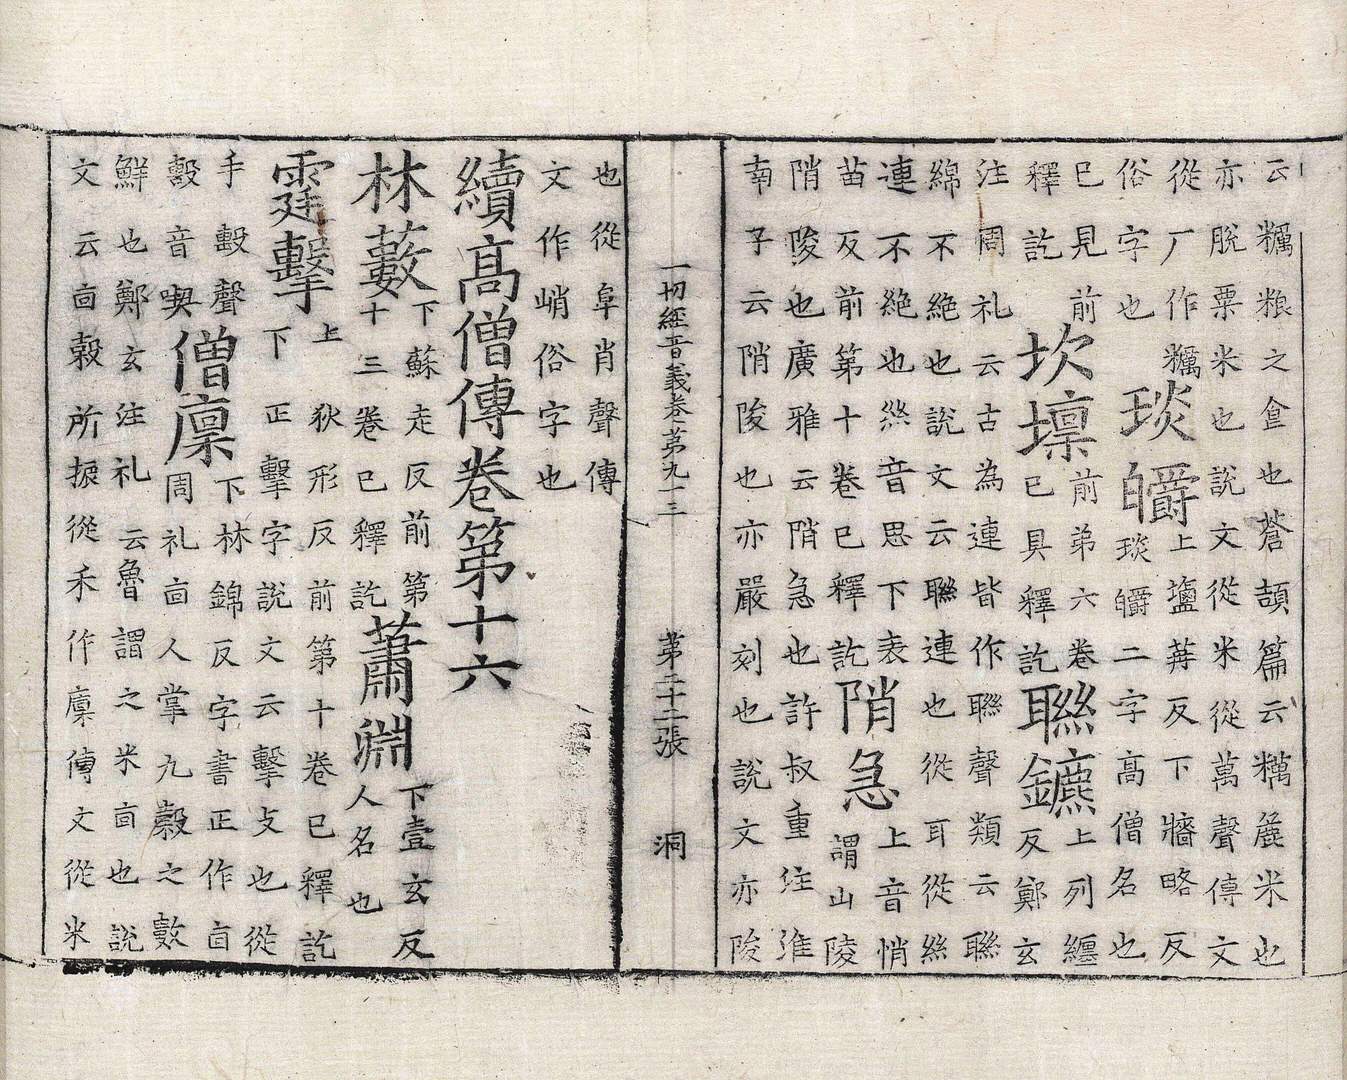 云糲粮之食也蒼頡篇云糲麁米也
亦脫粟米也說文從米從萬聲傳文
從厂作糲
俗字也
琰皭
上鹽苒反下牆略反
琰皭二字高僧名也
已見前
釋訖
坎壈
前弟六卷
已具釋訖
聯鑣
上列纏
反鄭玄
注周礼云古為連皆作聯聲類云聯
綿不絕也說文云聯連也從耳從絲
連不絕也絲音思下表
苗反前第十卷已釋訖
陗急
上音悄
謂山陵
陗陖也廣雅云陗急也許叔重注淮
南子云陗陖也亦嚴刻也說文亦陖
一切經音義卷第九十三 第二十二張 洞
也從阜肖聲傳
文作峭俗字也
續高僧傳卷第十六
林藪
下蘇走反前第
十三卷已釋訖
蕭淵
下壹玄反
人名也
霆擊
上狄形反前第十卷已釋訖
下正擊字說文云擊攴也從
手毄聲
毄音喫
僧廩
下林錦反字書正作㐭
周礼㐭人掌九穀之數
鮮也鄭玄注礼云魯謂之米㐭也說
文云㐭穀所振從禾作廩傳文從米